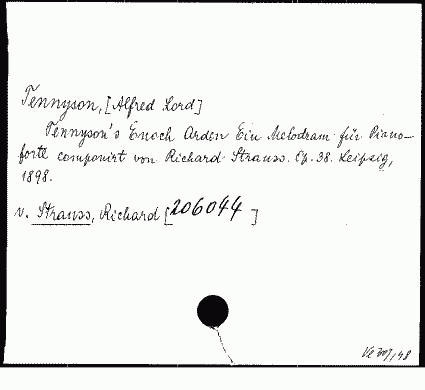 Tennyson, [Alfred Lord]
Tennyson's Enoch Arden Ein Melodram für Piano-
forte componirt von Richard Strauss. Op. 38. Leipzig,
1898.
v. Strauss, Richard [206044]